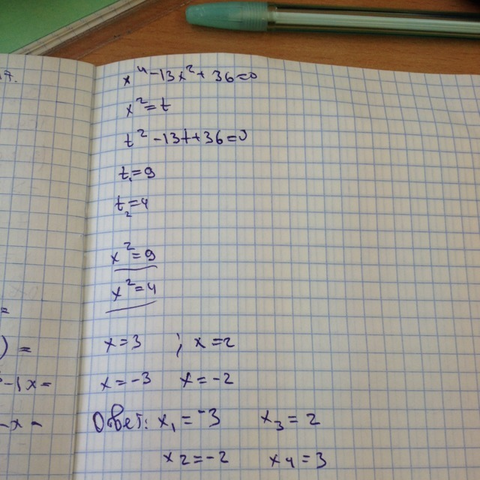 x⁴-13x²+36=0
x²=t
t²-13t+36=0
t₁=9
t₂=4
x²=9
x²=4
x=3 ; x=2
x=-3 x=-2
Ответ: x₁=-3 x₃=2
x₂=-2 x₄=3
) =
-x-